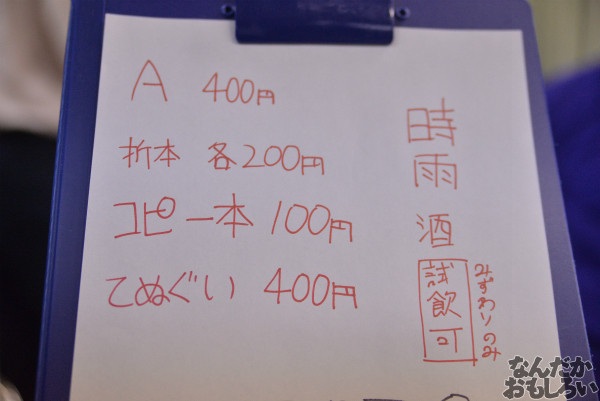 A 400円
折本 各200円
コピー本 100円
てぬぐい 400円
時雨酒
試飲可
みずわりのみ
なんだか
おもしろい